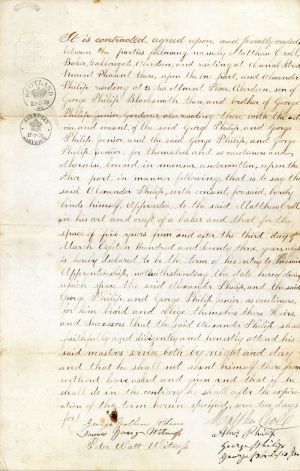 It is contracted agreed upon, and finally ended
between the parties following, namely Matthew Croll
Baker, Gallowgate, Aberdeen, and residing at Canal Street
Mount Pleasant there, upon the one part, and Alexander
Philip residing at 15 Mount Place, Aberdeen, son of
George Philip Blacksmith there, and brother of George
Philip junior, Gardener also residing there with the ad
vice, and consent, of the said George Philip, and George
Philip junior, and the said George Philip, and George
Philip junior, for themselves and as cautioners and
otherwise, bound in manner underwritten, upon the
other part, in manner following, that is to say the
said Alexander Philip, with consent foresaid, hereby
binds himself, Apprentice to the said Matthew Croll
in his art and craft of a baker and that for the
space of five years from and after the third day of
March Eighteen Hundred and Seventy three years, which
is hereby declared to be the term of his entry to the said
Apprenticeship, notwithstanding the date hereof during
which space the said Alexander Philip, and the said
George Philip, and George Philip junior, as cautioners,
for him bind and oblige themselves their Heirs,
and successors that the said Alexander Philip shall
faithfully and diligently, and honestly attend his
said masters service both by night and day
and that he shall not absent himself therefrom
without leave asked and given and that if he
shall do in the contrary he shall after the expira-
tion of the term herein specified, serve two days
for
SCOTLAND
James George Witness
Peter Watt Witness
Matthew Croll
Alex Philip
George Philip
George Philip Jun